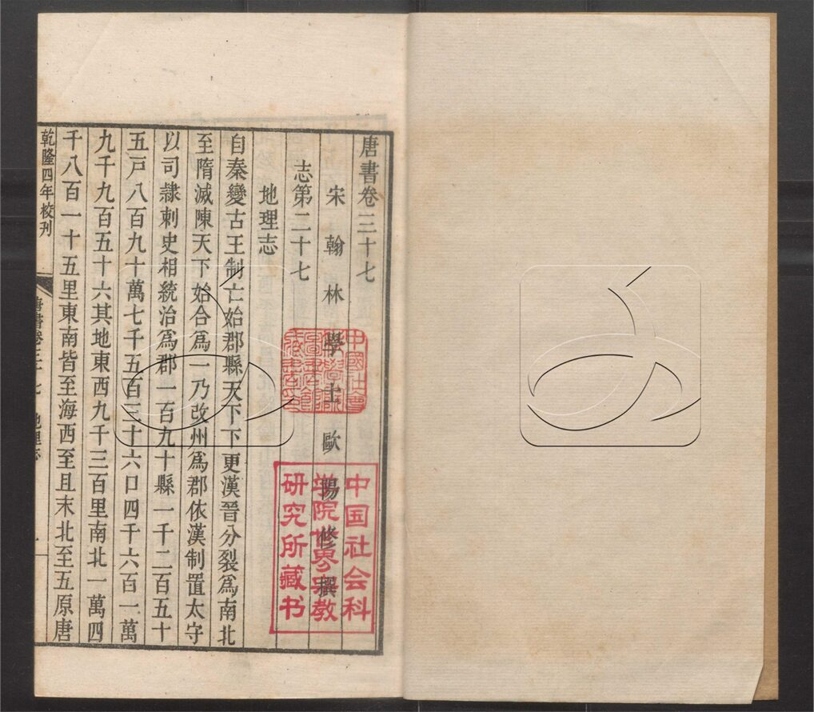 唐書卷三十七
宋翰林學士歐陽修撰
志第二十七
地理志
自秦變古王制亡始郡縣天下下更漢晉分裂爲南北
至隋滅陳天下始合爲一乃改州爲郡依漢制置太守
以司隷刺史相統治爲郡一百九十縣一千二百五十
五戸八百九十萬七千五百三十六口四千六百一萬
九千九百五十六其地東西九千三百里南北一萬四
千八百一十五里東南皆至海西至且末北至五原唐
乾隆四年校刊
唐書卷三十七 地理志 一
中国社会科
学院世界宗教
研究所藏书